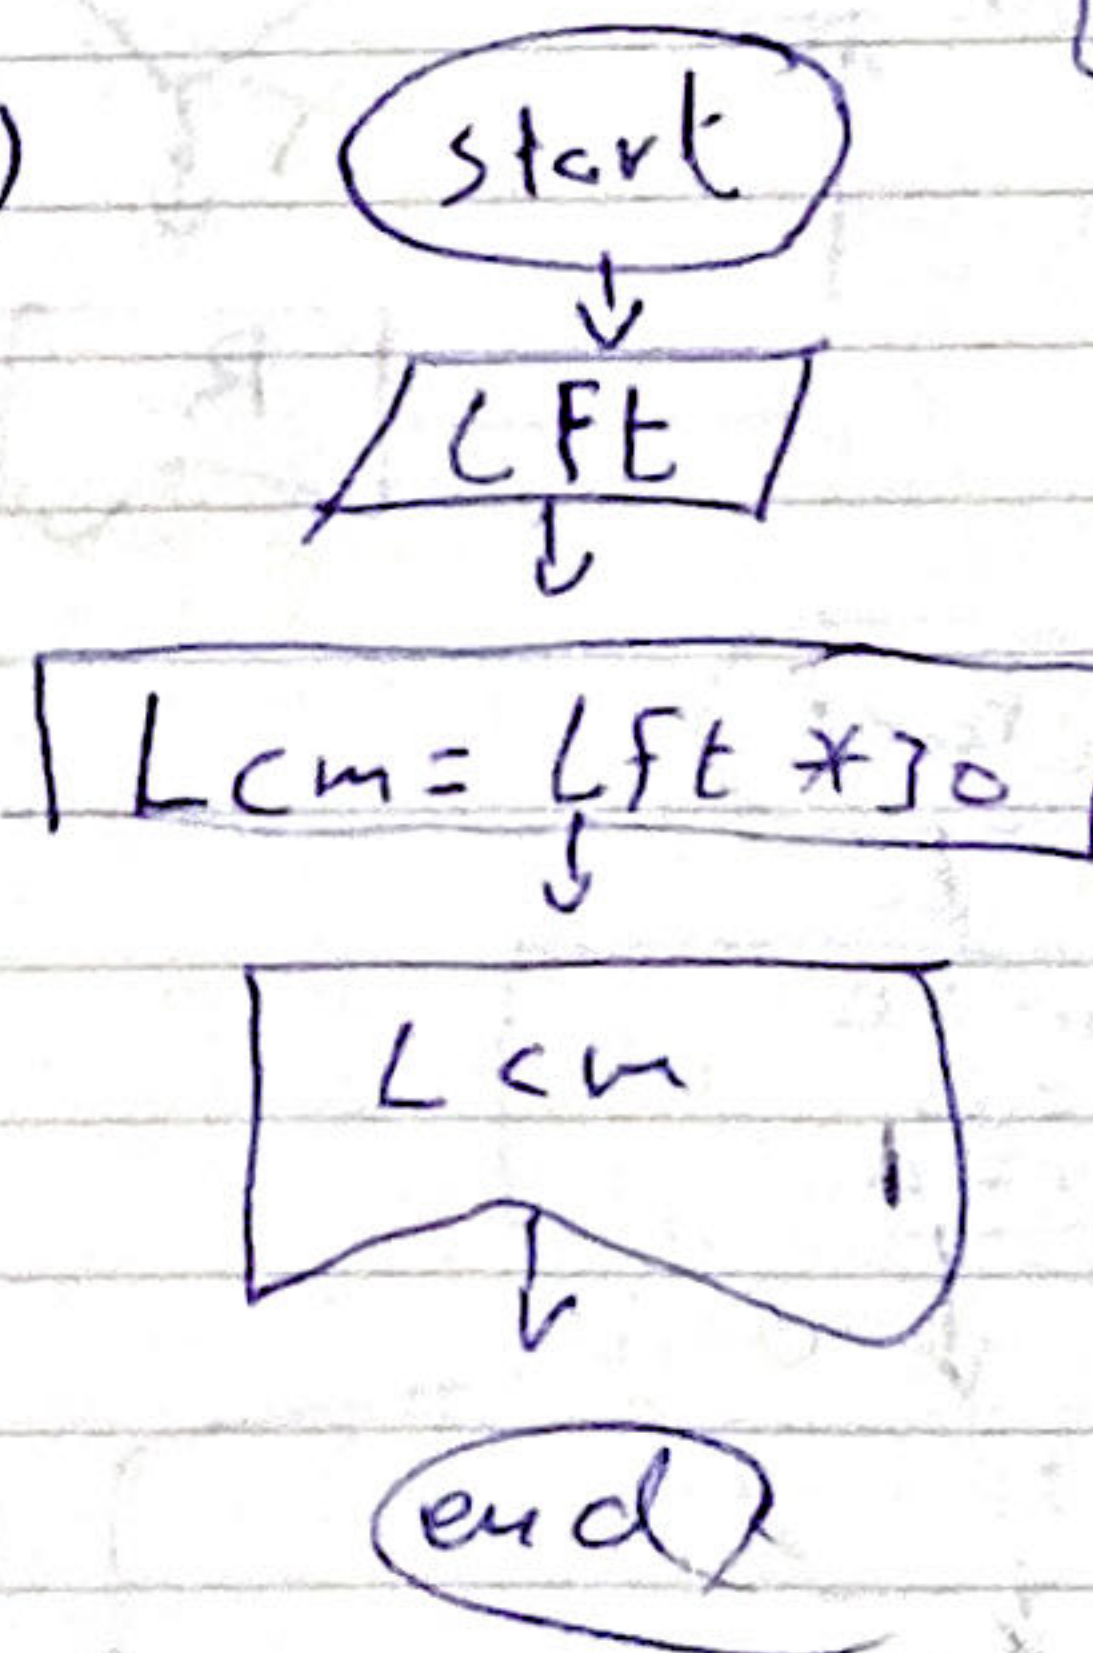 start
Lft
Lcm = Lft *30
Lcm
end